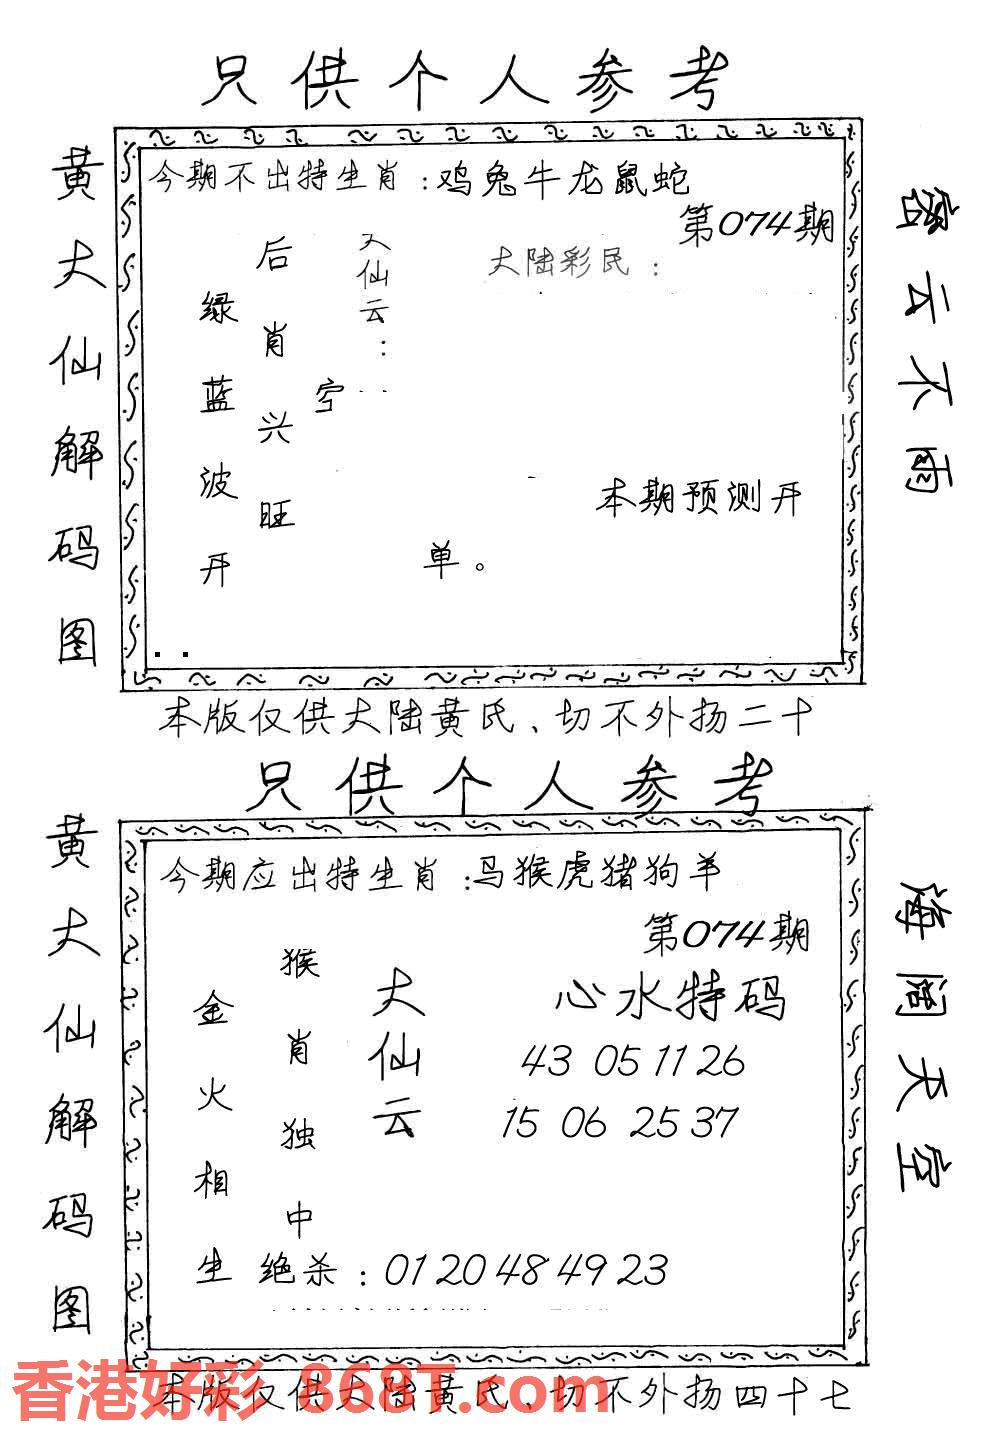 只供个人参考
黄大仙解码图
今期不出特生肖：鸡兔牛龙鼠蛇
第074期
大陆彩民：
仙云：
后肖兴旺
绿蓝波开
单。
本期预测开
密云不雨
本版仅供大陆黄氏、切不外扬二十
只供个人参考
黄大仙解码图
今期应出特生肖：马猴虎猪狗羊
第074期
心水特码
大仙云
猴肖独中
金火相生
43 05 11 26
15 06 25 37
绝杀：01 20 48 49 23
海阔天空
香港好彩 868T.com
本版仅供大陆黄氏、切不外扬四十七